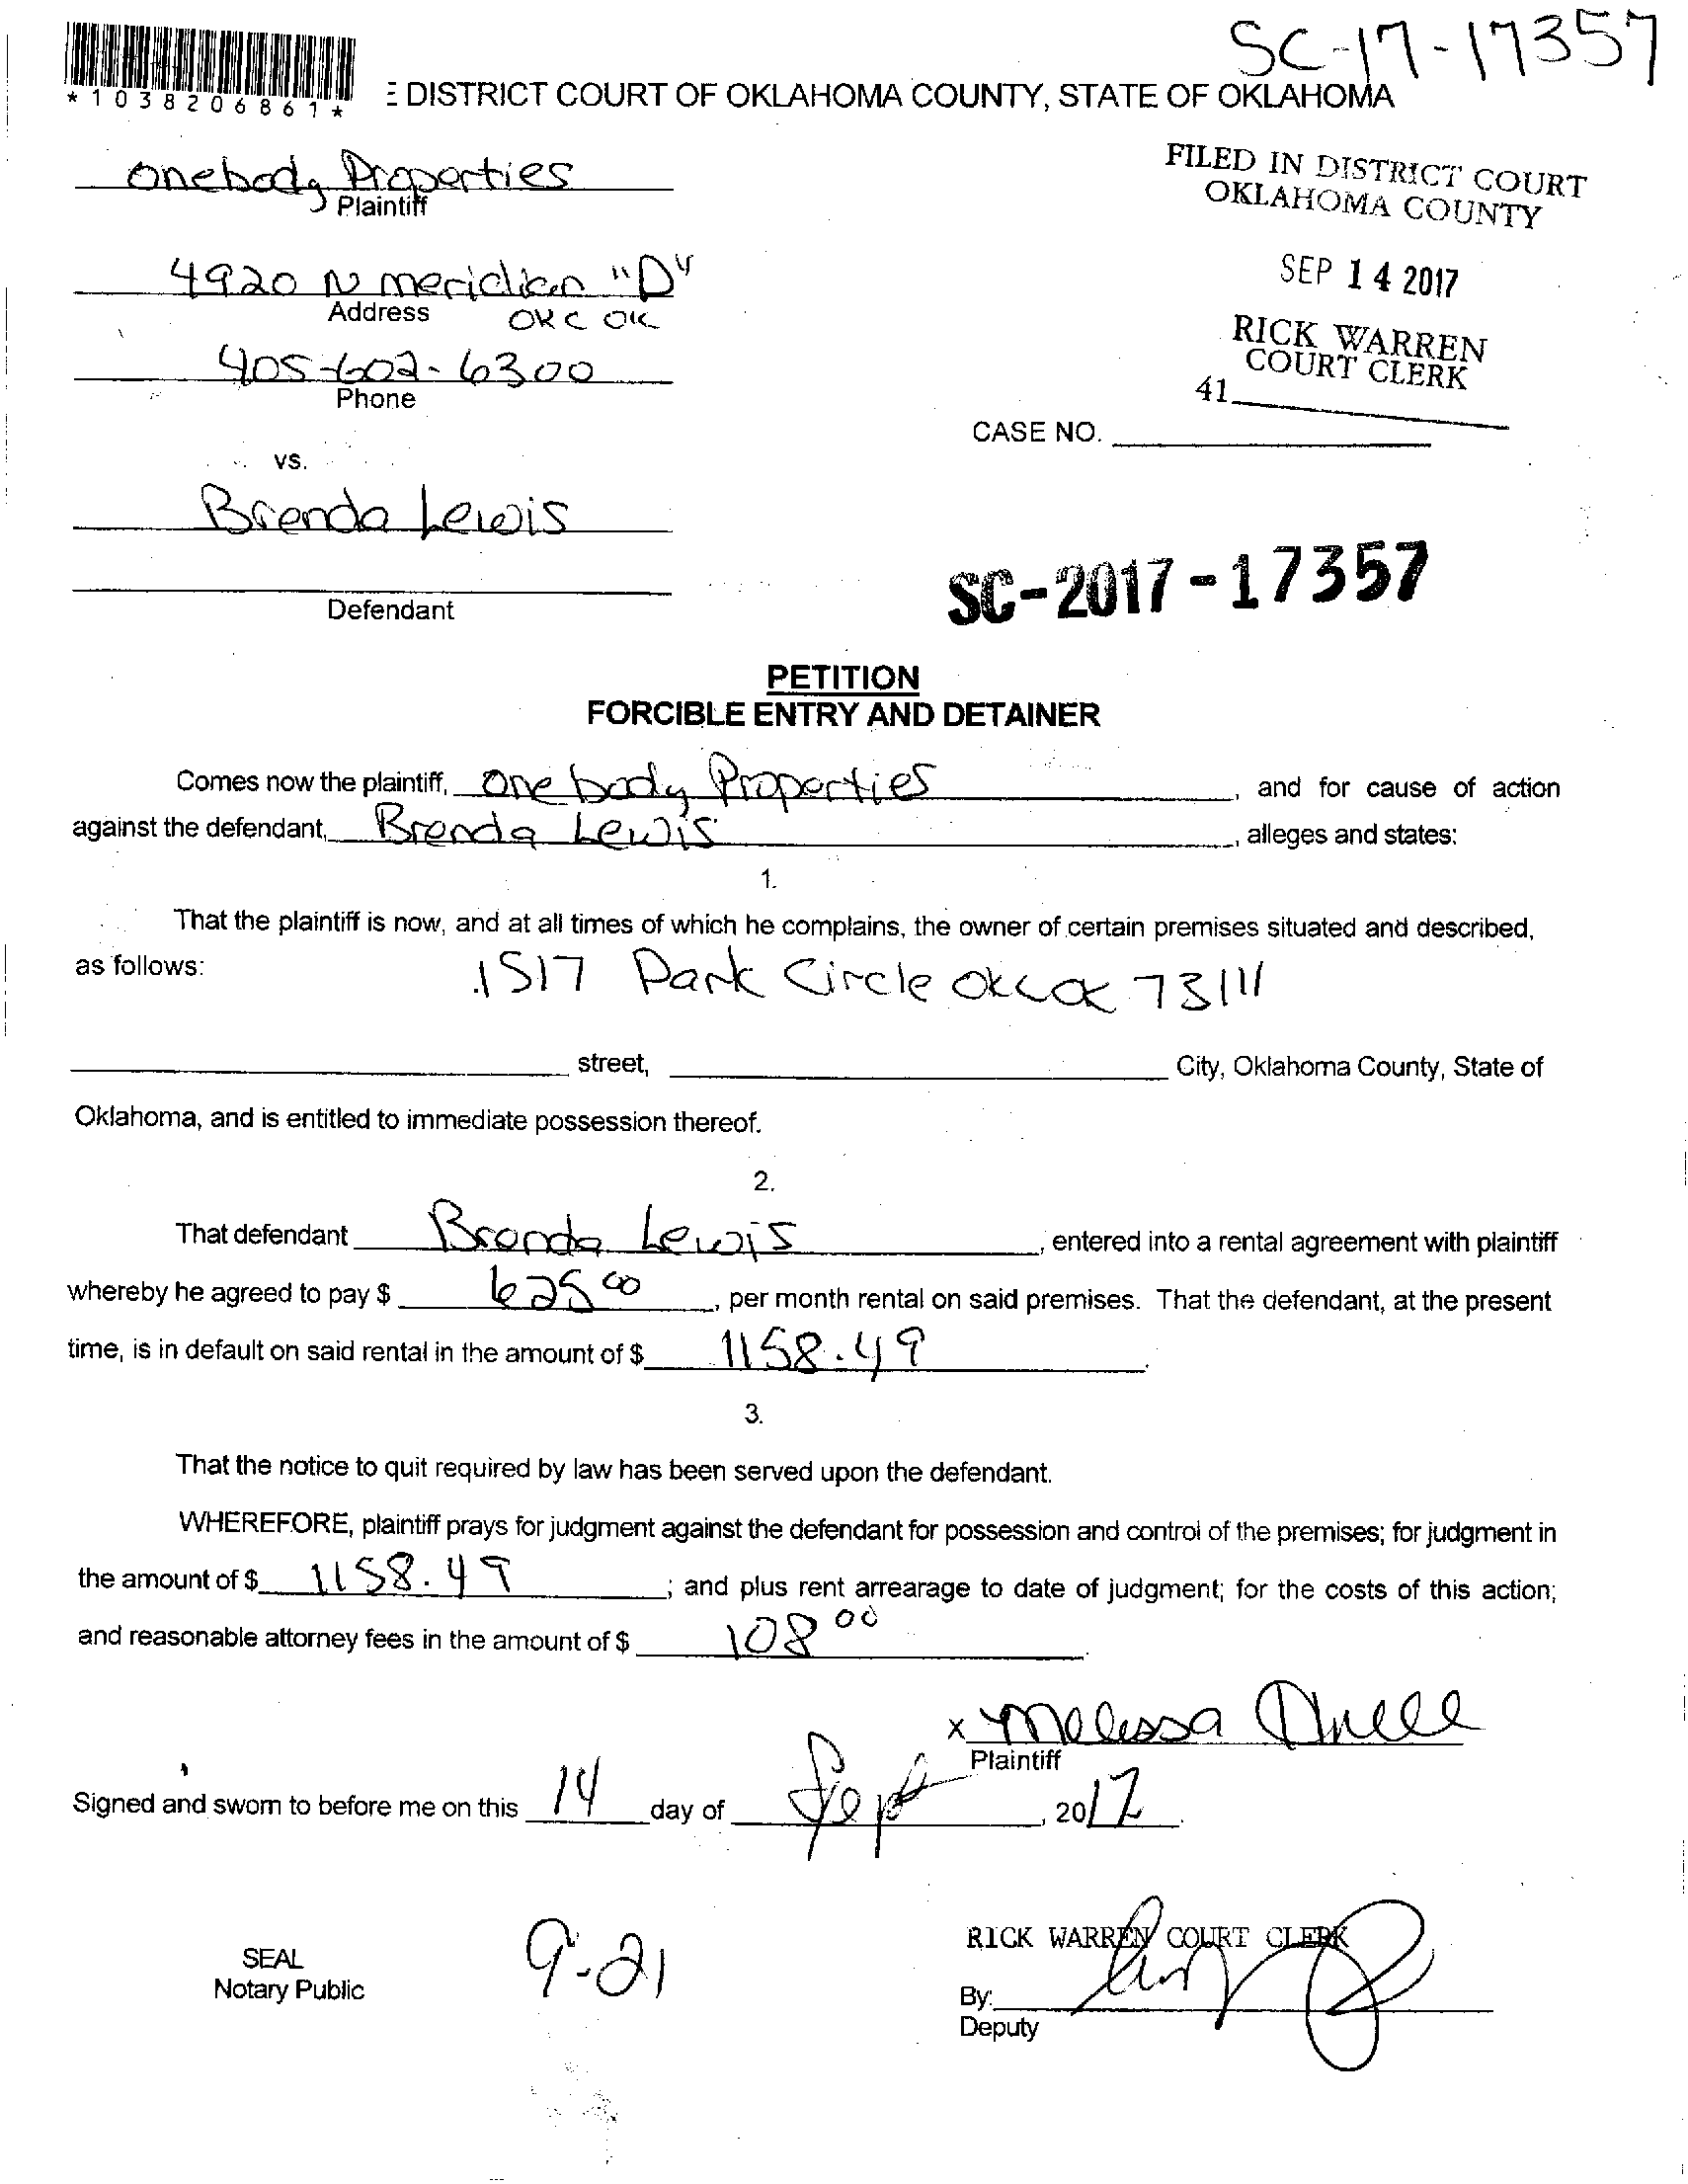 SC-17-17357
*1038206861*
E DISTRICT COURT OF OKLAHOMA COUNTY, STATE OF OKLAHOMA
Onebody Properties
Plaintiff
FILED IN DISTRICT COURT
OKLAHOMA COUNTY
4920 N meridian "D"
Address OKC OK
SEP 14 2017
405-602-6300
Phone
RICK WARREN
COURT CLERK
41
CASE NO.
vs.
Brenda Lewis
Defendant
SC-2017-17357
PETITION
FORCIBLE ENTRY AND DETAINER
Comes now the plaintiff, One body Properties, and for cause of action
against the defendant, Brenda Lewis, alleges and states:
1.
That the plaintiff is now, and at all times of which he complains, the owner of certain premises situated and described,
as follows: 1517 Park Circle OKC OK 73111
street, City, Oklahoma County, State of
Oklahoma, and is entitled to immediate possession thereof.
2.
That defendant Brenda Lewis, entered into a rental agreement with plaintiff
whereby he agreed to pay $ 625 00, per month rental on said premises. That the defendant, at the present
time, is in default on said rental in the amount of $ 1158.49.
3.
That the notice to quit required by law has been served upon the defendant.
WHEREFORE, plaintiff prays for judgment against the defendant for possession and control of the premises; for judgment in
the amount of $ 1158.49; and plus rent arrearage to date of judgment; for the costs of this action;
and reasonable attorney fees in the amount of $ 108 00.
x Melissa
Plaintiff
Signed and sworn to before me on this 14 day of Sept, 2017.
SEAL
Notary Public
9-21
RICK WARREN COURT CLERK
By:
Deputy